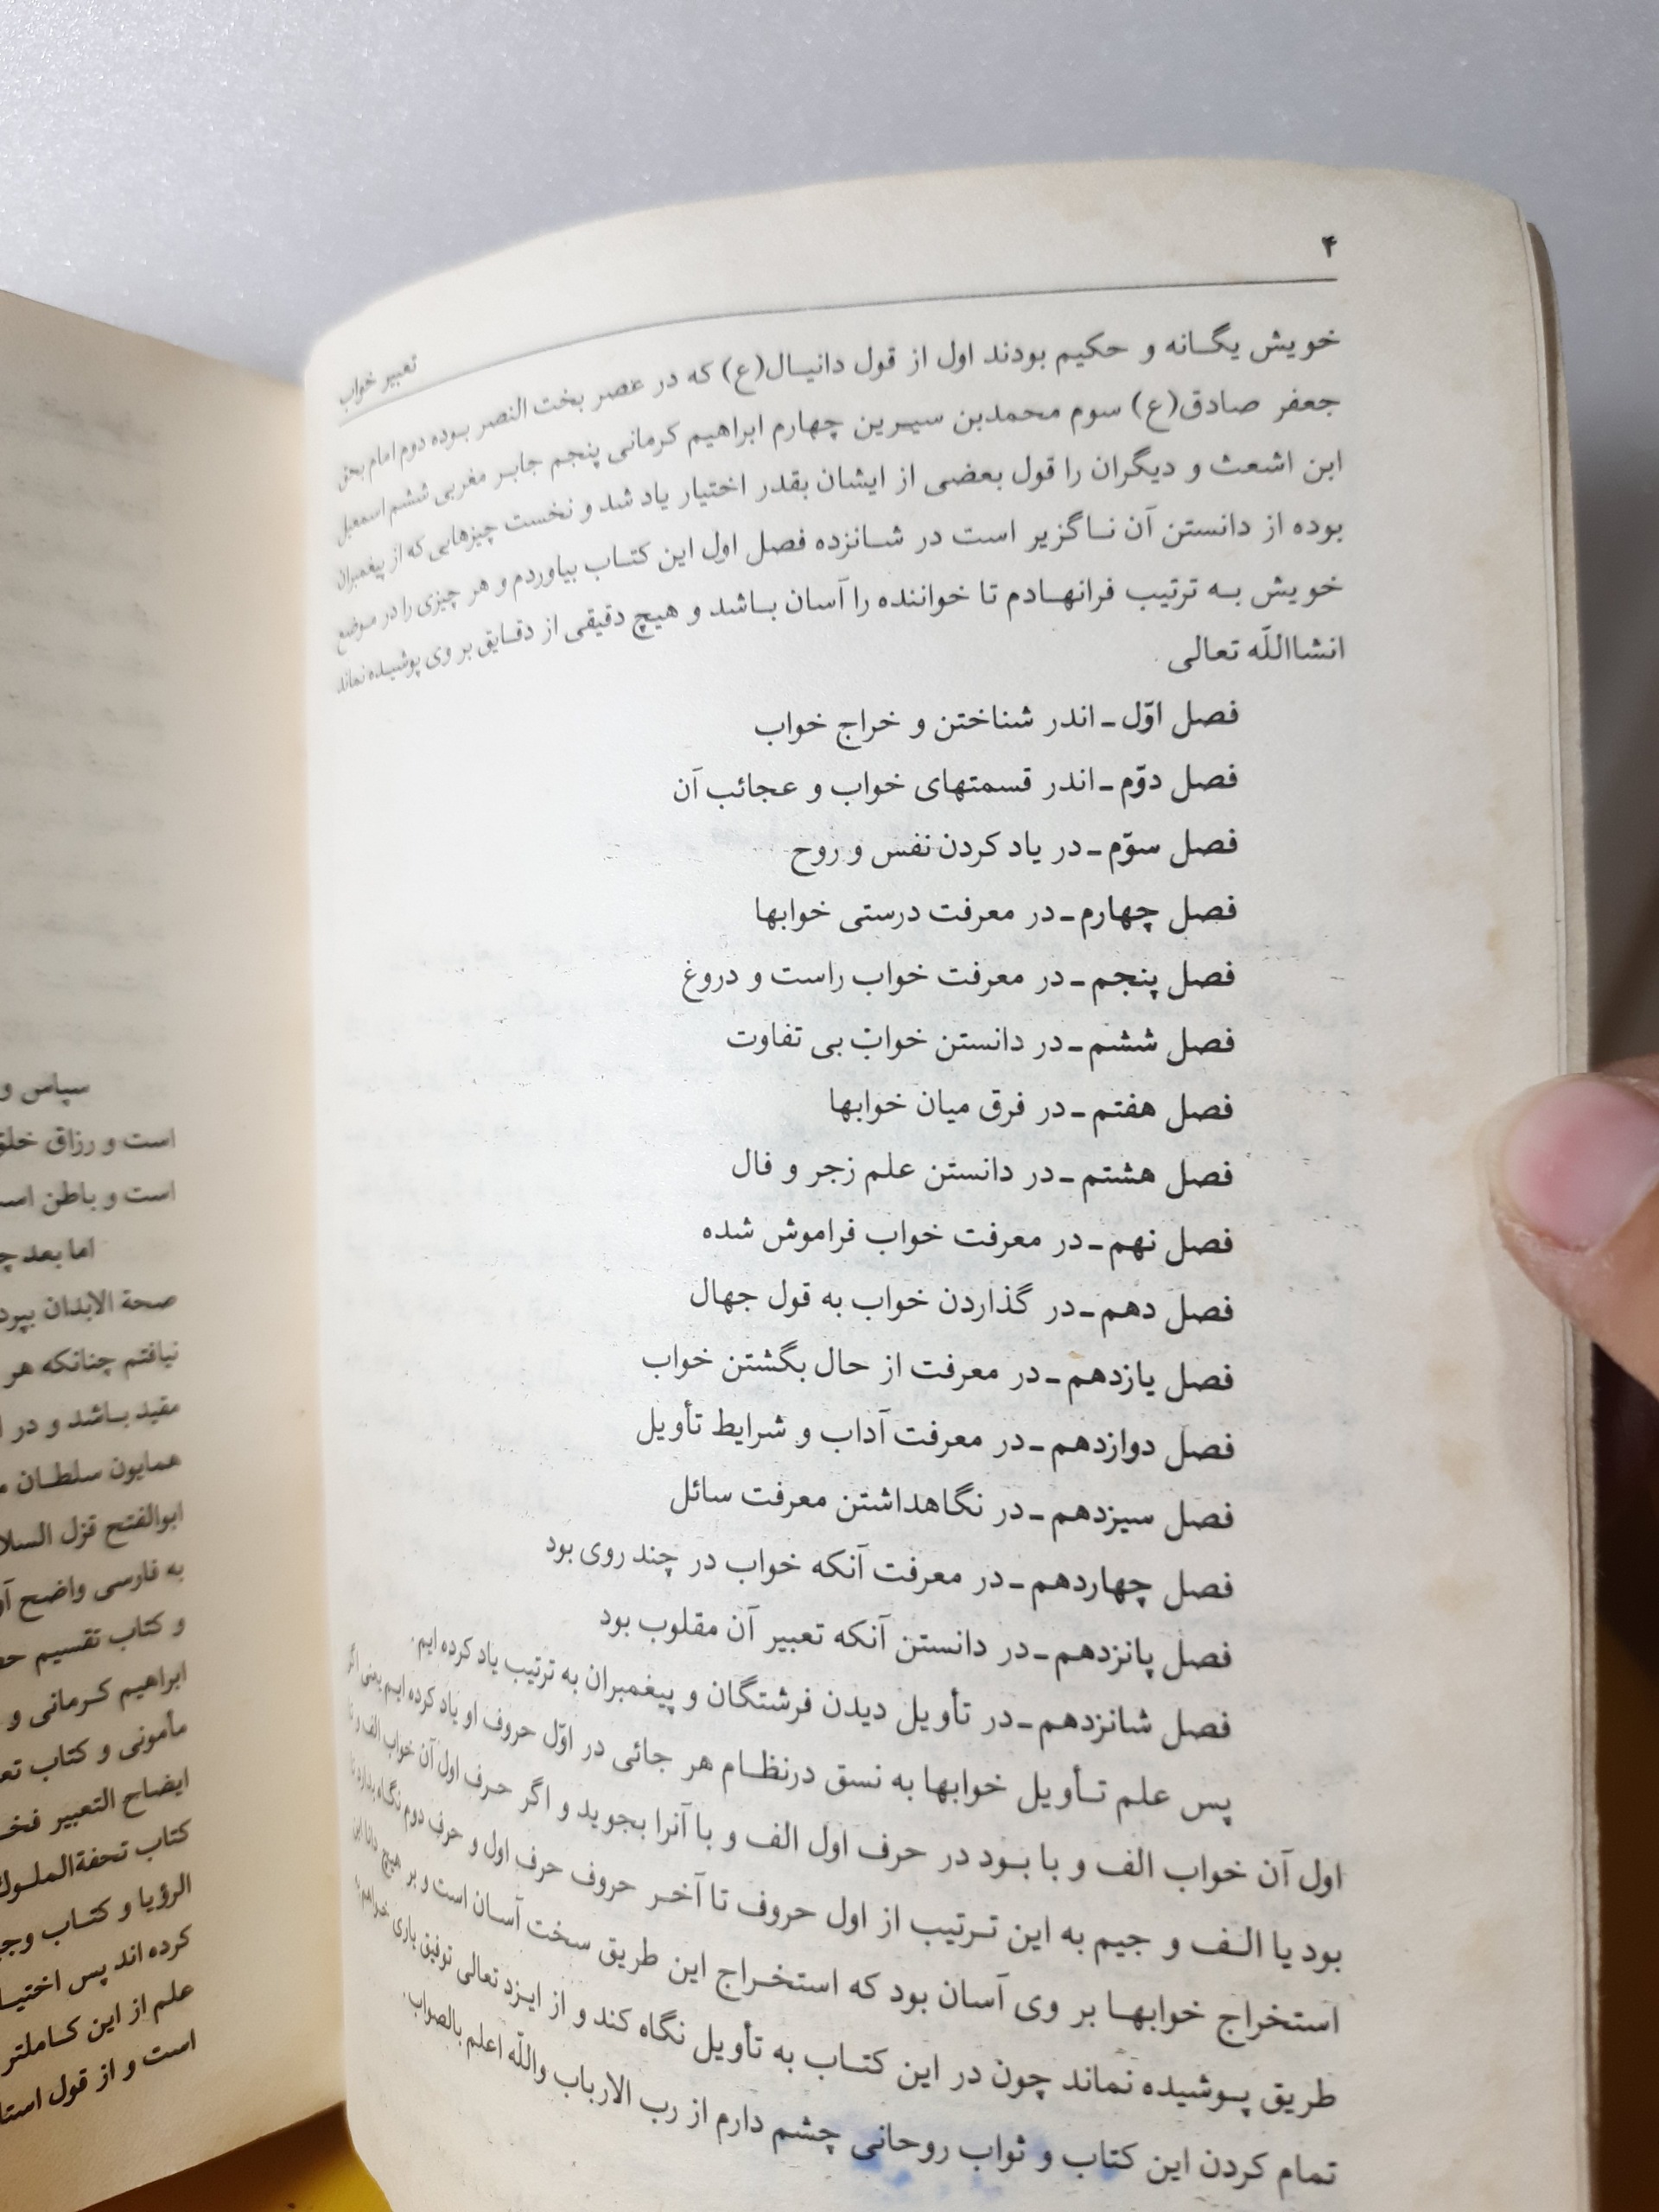 ۴
تعبیر خواب
خویش یگانه و حکیم بودند اول از قول دانیال(ع) که در عصر بخت النصر بوده دوم امام بحق
جعفر صادق(ع) سوم محمدبن سیرین چهارم ابراهیم کرمانی پنجم جابر مغربی ششم اسمعیل
ابن اشعث و دیگران را قول بعضی از ایشان بقدر اختیار یاد شد و نخست چیزهایی که از پیغمبران
بوده از دانستن آن ناگزیر است در شانزده فصل اول این کتاب بیاوردم و هر چیزی را در موضع
خویش به ترتیب فرانهادم تا خواننده را آسان باشد و هیچ دقیقی از دقایق بر وی پوشیده نماند
انشااللّه تعالی
فصل اوّل ـ اندر شناختن و خراج خواب
فصل دوّم ـ اندر قسمتهای خواب و عجائب آن
فصل سوّم ـ در یاد کردن نفس و روح
فصل چهارم ـ در معرفت درستی خوابها
فصل پنجم ـ در معرفت خواب راست و دروغ
فصل ششم ـ در دانستن خواب بی تفاوت
فصل هفتم ـ در فرق میان خوابها
فصل هشتم ـ در دانستن علم زجر و فال
فصل نهم ـ در معرفت خواب فراموش شده
فصل دهم ـ در گذاردن خواب به قول جهال
فصل یازدهم ـ در معرفت از حال بگشتن خواب
فصل دوازدهم ـ در معرفت آداب و شرایط تأویل
فصل سیزدهم ـ در نگاهداشتن معرفت سائل
فصل چهاردهم ـ در معرفت آنکه خواب در چند روی بود
فصل پانزدهم ـ در دانستن آنکه تعبیر آن مقلوب بود
فصل شانزدهم ـ در تأویل دیدن فرشتگان و پیغمبران به ترتیب یاد کرده ایم.
پس علم تأویل خوابها به نسق درنظام هر جائی در اوّل حروف او یاد کرده ایم یعنی اگر
اول آن خواب الف و با بود در حرف اول الف و با آنرا بجوید و اگر حرف اول آن خواب الف و تا
بود یا الف و جیم به این ترتیب از اول حروف تا آخر حروف حرف اول و حرف دوم نگاه بدارد تا
استخراج خوابها بر وی آسان بود که استخراج این طریق سخت آسان است و بر هیچ دانا این
طریق پوشیده نماند چون در این کتاب به تأویل نگاه کند و از ایزد تعالی توفیق یاری خواهم به
تمام کردن این کتاب و ثواب روحانی چشم دارم از رب الارباب واللّه اعلم بالصواب.
سپاس و
است و رزاق خلق
است و باطن
اما بعد
صحة الابدان
نیافتم چنانکه هر
مقید باشد و در
همایون سلطان
ابوالفتح قزل
به فارسی واضح
و کتاب تقسیم
ابراهیم کرمانی و
مأمونی و کتاب
ایضاح التعبیر
کتاب تحفةالملوک
الرؤیا و کتاب
کرده اند پس
علم از این کاملتر
است و از قول